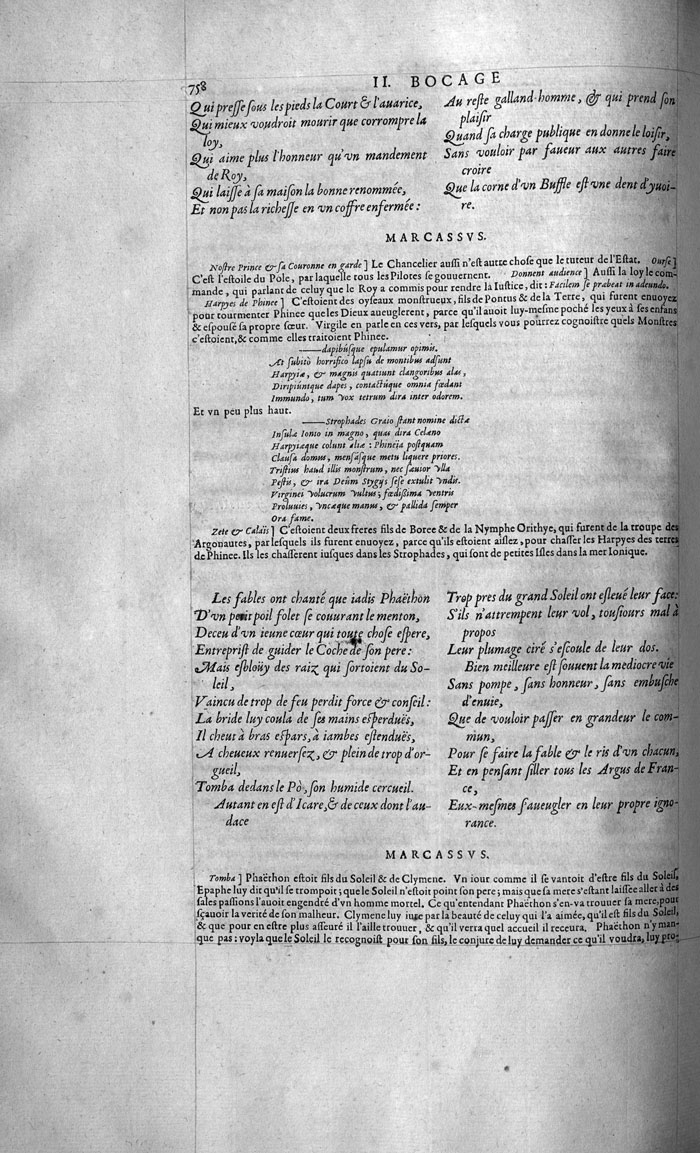 758
II. BOCAGE
Qui presse sous les pieds la Court & l'auarice,
Qui mieux voudroit mourir que corrompre la
loy,
Qui aime plus l'honneur qu'vn mandement
de Roy,
Qui laisse à sa maison la bonne renommée,
Et non pas la richesse en vn coffre enfermée:
Au reste galland-homme, & qui prend son
plaisir
Quand sa charge publique en donne le loisir,
Sans vouloir par faueur aux autres faire
croire
Que la corne d'vn Buffle est vne dent d'yuoi-
re.
MARCASSVS.
Nostre Prince & sa Couronne en garde] Le Chancelier aussi n'est autre chose que le tuteur de l'Estat. Ourse]
C'est l'estoile du Pole, par laquelle tous les Pilotes se gouuernent. Donnent audience] Aussi la loy le com-
mande, qui parlant de celuy que le Roy a commis pour rendre la Iustice, dit: Facilem se præbeat in adeundo.
Harpyes de Phinee] C'estoient des oyseaux monstrueux, fils de Pontus & de la Terre, qui furent enuoyez
pour tourmenter Phinee que les Dieux aueuglerent, parce qu'il auoit luy-mesme poché les yeux à ses enfans
& espousé sa propre sœur. Virgile en parle en ces vers, par lesquels vous pourrez cognoistre quels Monstres
c'estoient, & comme elles traitoient Phinee.
——dapibúsque epulamur opimis.
At subitò horrifico lapsu de montibus adsunt
Harpyiæ, & magnis quatiunt clangoribus alas,
Diripiúntque dapes, contactúque omnia fœdant
Immundo, tum vox tetrum dira inter odorem.
Et vn peu plus haut.
——Strophades Graio stant nomine dictæ
Insulæ Ionio in magno, quas dira Celæno
Harpyiæque colunt aliæ: Phineïa postquam
Clausa domus, mensásque metu liquere priores.
Tristius haud illis monstrum, nec sæuior vlla
Pestis, & ira Deûm Stygijs sese extulit vndis.
Virginei volucrum vultus; fœdissima ventris
Proluuies, vncæque manus, & pallida semper
Ora fame.
Zete & Calaïs] C'estoient deux freres fils de Boree & de la Nymphe Orithye, qui furent de la troupe des
Argonautes, par lesquels ils furent enuoyez, parce qu'ils estoient aislez, pour chasser les Harpyes des terres
de Phinee. Ils les chasserent iusques dans les Strophades, qui sont de petites Isles dans la mer Ionique.
Les fables ont chanté que iadis Phaëthon
D'vn petit poil folet se couurant le menton,
Deceu d'vn ieune cœur qui toute chose espere,
Entreprist de guider le Coche de son pere:
Mais esbloüy des raiz qui sortoient du So-
leil,
Vaincu de trop de feu perdit force & conseil:
La bride luy coula de ses mains esperduës,
Il cheut à bras espars, à iambes estenduës,
A cheueux renuersez, & plein de trop d'or-
gueil,
Tomba dedans le Pò, son humide cercueil.
Autant en est d'Icare, & de ceux dont l'au-
dace
Trop pres du grand Soleil ont esleué leur face:
S'ils n'attrempent leur vol, tousiours mal à
propos
Leur plumage ciré s'escoule de leur dos.
Bien meilleure est souuent la mediocre vie
Sans pompe, sans honneur, sans embusche
d'enuie,
Que de vouloir passer en grandeur le com-
mun,
Pour se faire la fable & le ris d'vn chacun,
Et en pensant siller tous les Argus de Fran-
ce,
Eux-mesmes s'aueugler en leur propre igno-
rance.
MARCASSVS.
Tomba] Phaëthon estoit fils du Soleil & de Clymene. Vn iour comme il se vantoit d'estre fils du Soleil,
Epaphe luy dit qu'il se trompoit; que le Soleil n'estoit point son pere; mais que sa mere s'estant laissée aller à des
sales passions l'auoit engendré d'vn homme mortel. Ce qu'entendant Phaëthon s'en-va trouuer sa mere, pour
sçauoir la verité de son malheur. Clymene luy iure par la beauté de celuy qui l'a aimée, qu'il est fils du Soleil,
& que pour en estre plus asseuré il l'aille trouuer, & qu'il verra quel accueil il receura. Phaëthon n'y man-
que pas: voyla que le Soleil le recognoist pour son fils, le coniure de luy demander ce qu'il voudra, luy pro-